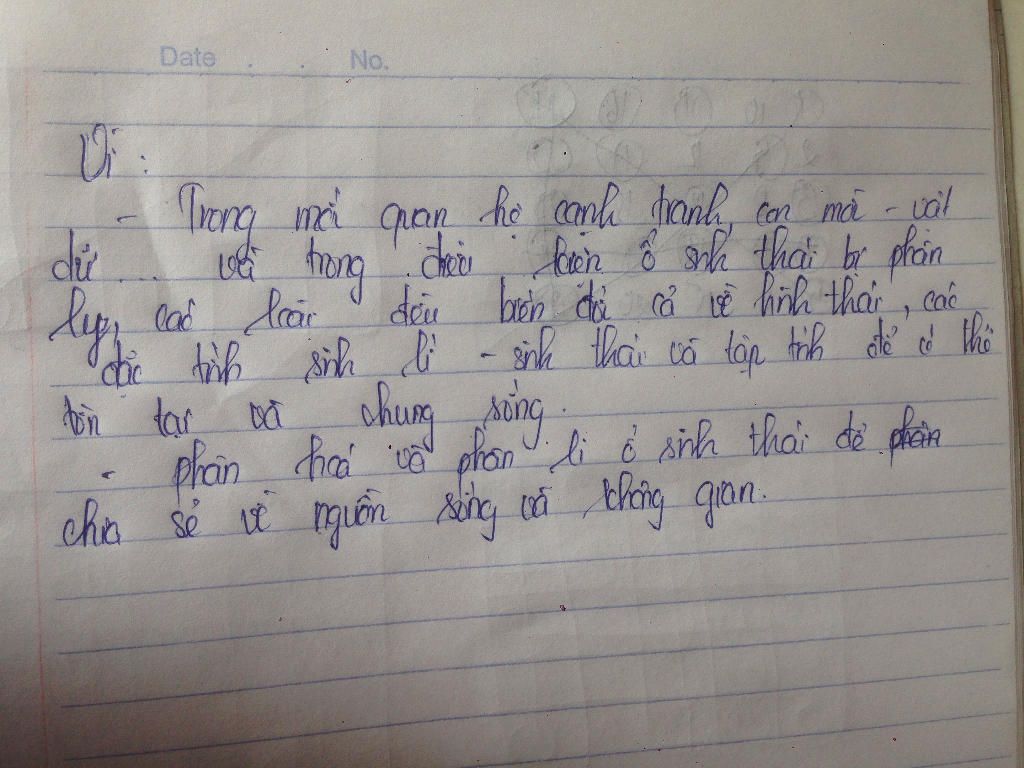 Date . . No.
Vì :
- Trong mối quan hệ cạnh tranh, con mồi - vật
dữ ... và trong điều kiện ổ sinh thái bị phân
ly, các loài đều biến đổi cả về hình thái, các
đặc tính sinh lí - sinh thái và tập tính để có thể
tồn tại và chung sống.
- phân hoá và phân li ổ sinh thái để
chia sẻ về nguồn sống và không gian.